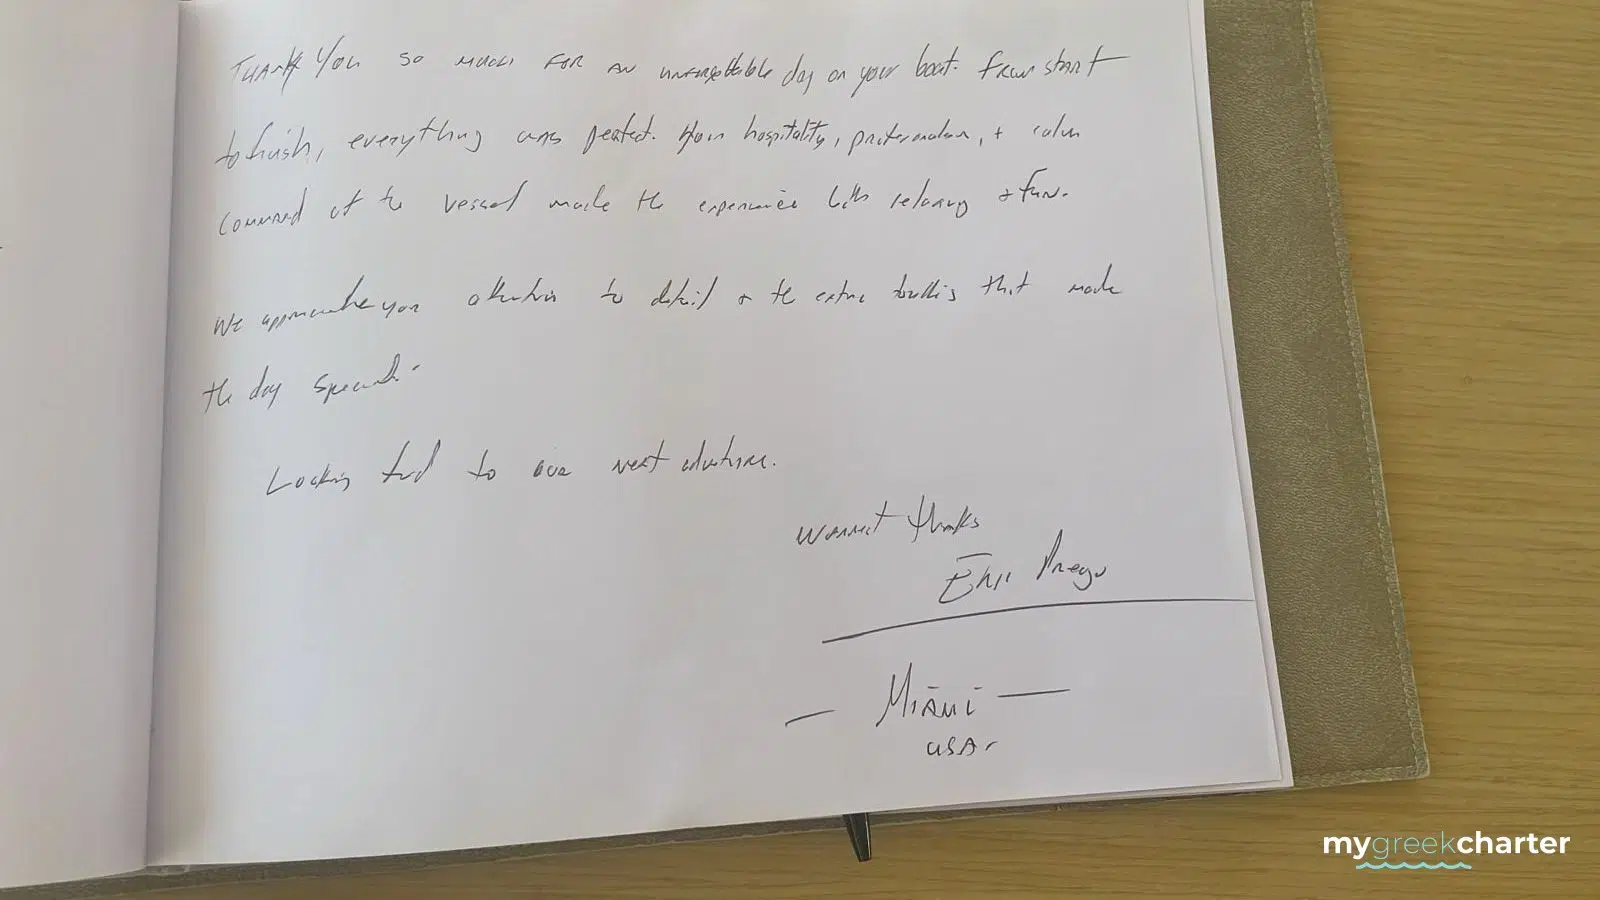 Thank you so much for an unforgettable day on your boat. From start
to finish, everything was perfect. Your hospitality, professionalism, + calm
command of the vessel made the experience both relaxing + fun.
We appreciate your attention to detail + the extra touches that made
the day special.
Looking fwd to our next adventure.
Warmest thanks
Miami
USA
mygreekcharter